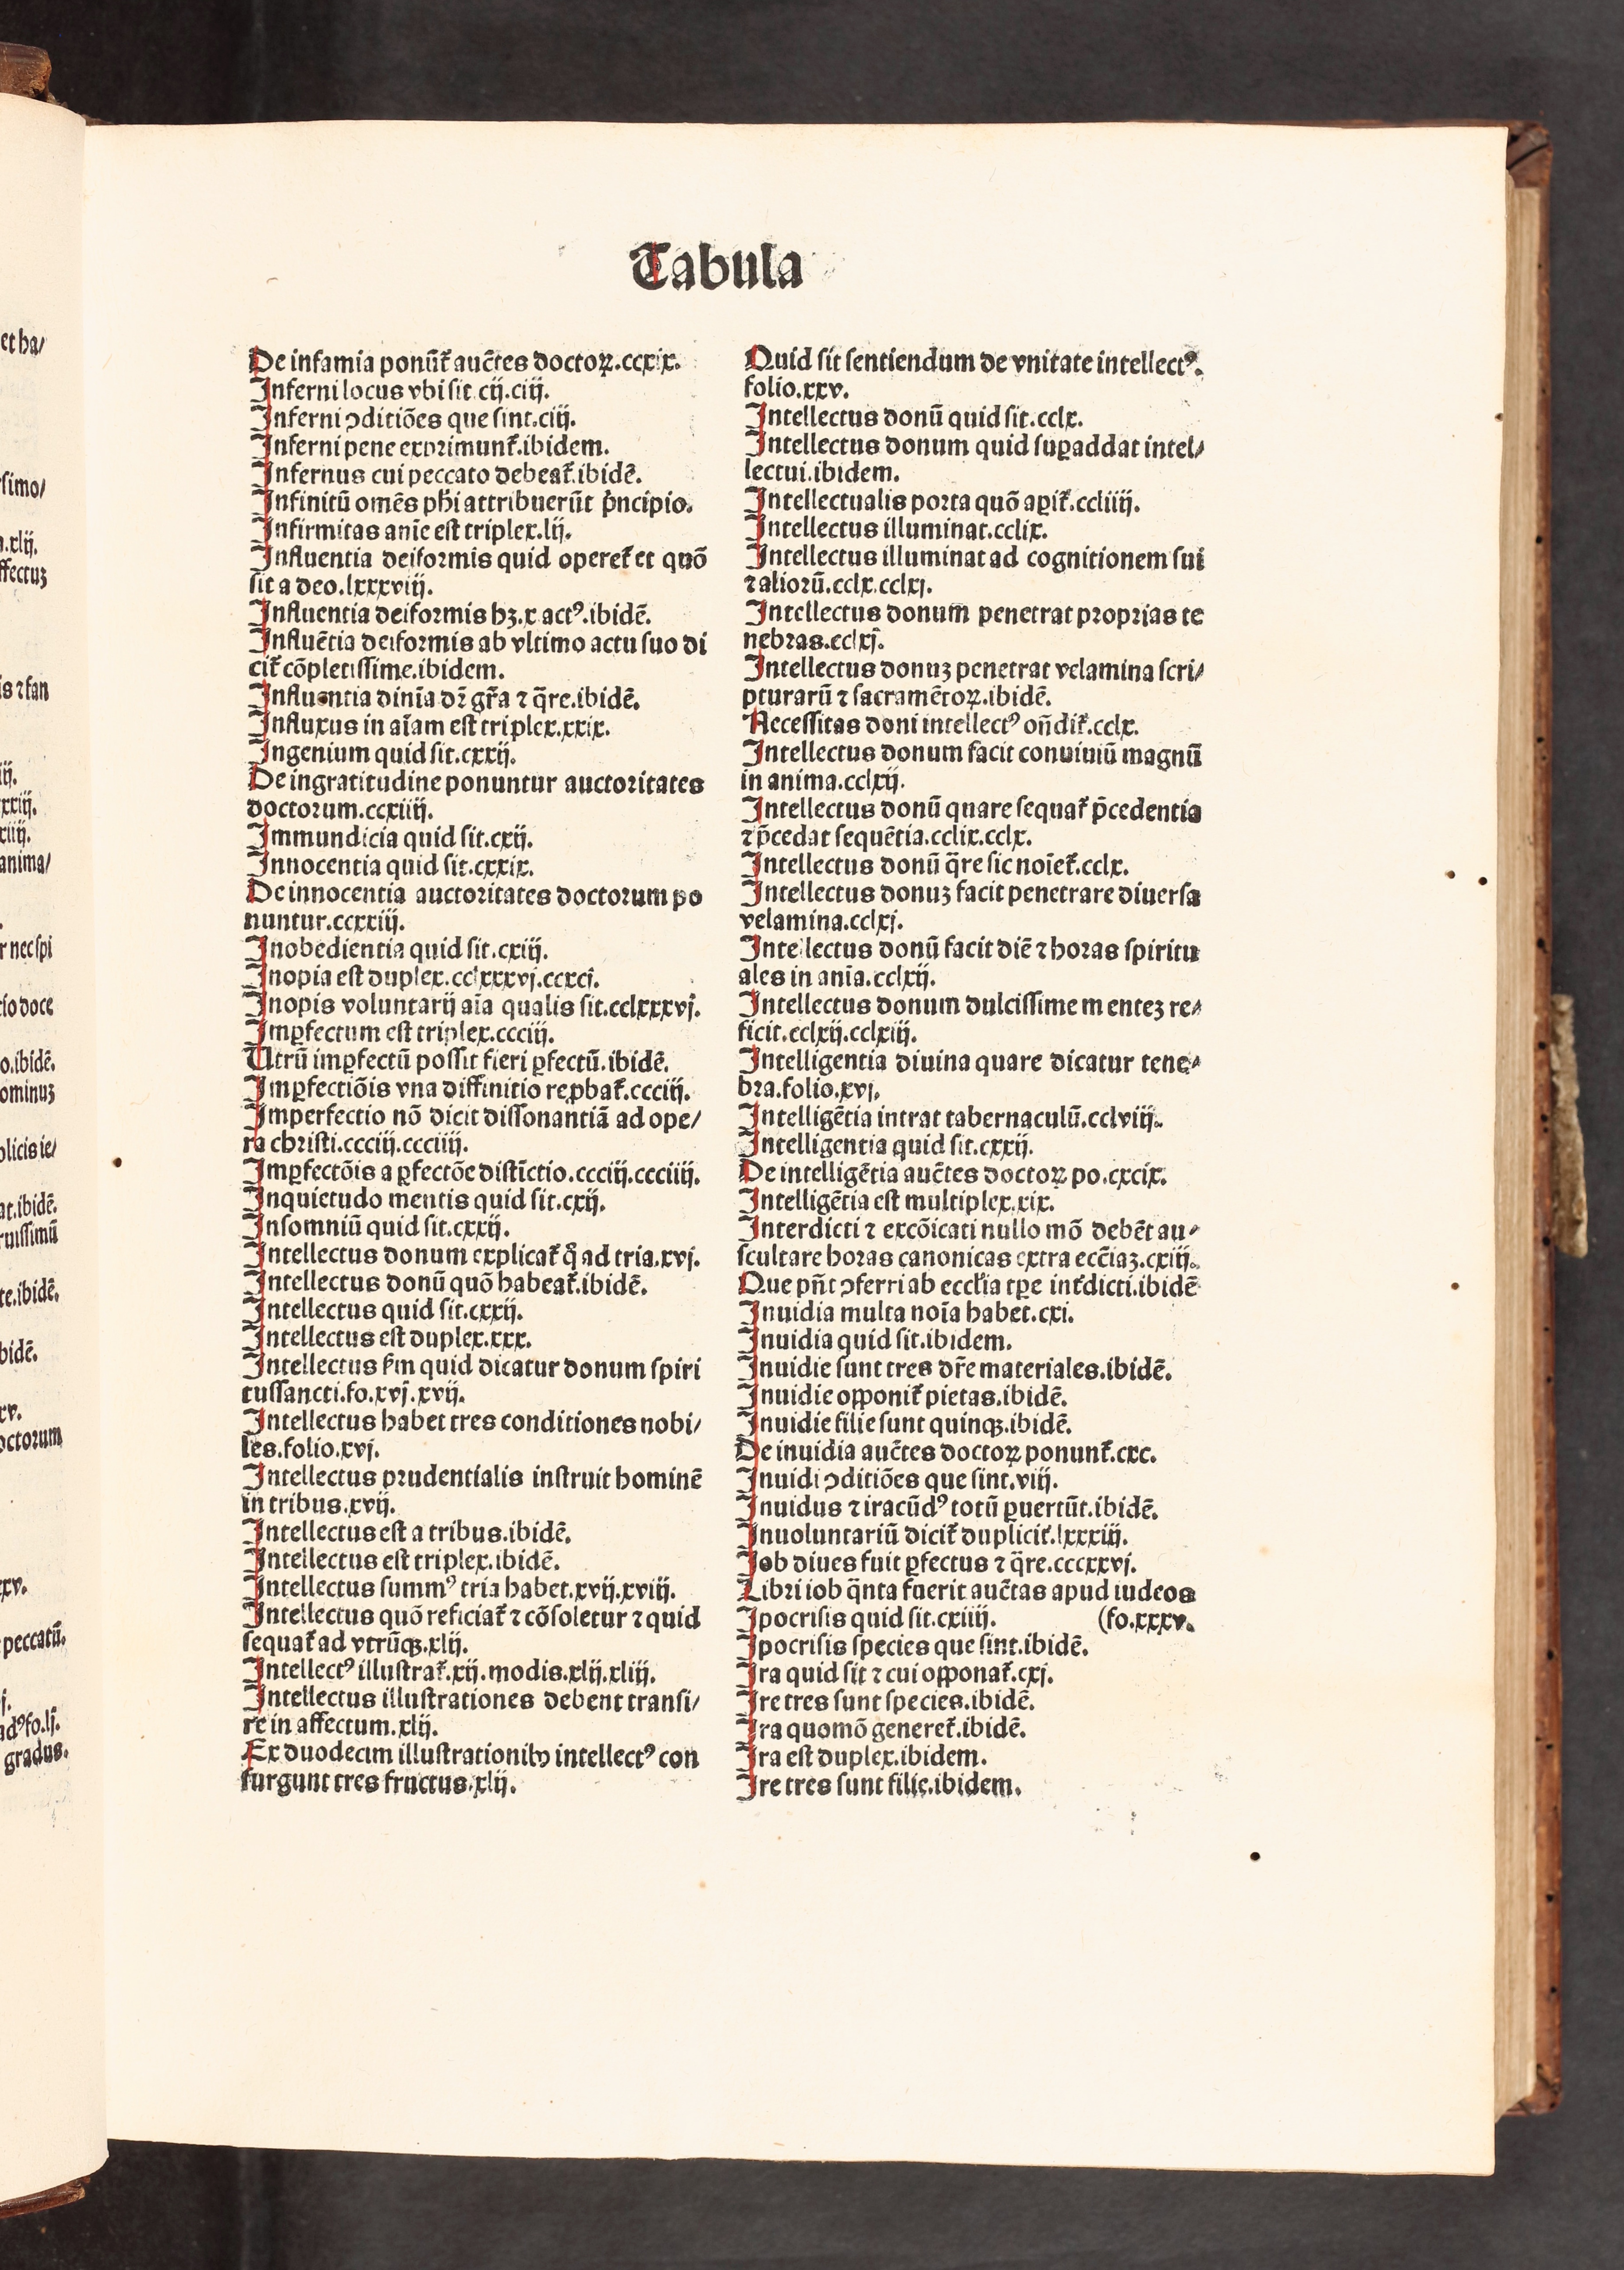 Tabula
De infamia ponūt᷑ auc̄tes doctoꝝ.ccxix.
Inferni locus vbi sit cij.ciij.
Inferni ↄditiōes que sint.ciij.
Inferni pene exprimunt᷑.ibidem.
Infernus cui peccato debeat᷑.ibidē.
Infinitū omēs ph̄i attribuerūt p̄ncipio.
Infirmitas anīe est triplex.lij.
Influentia deiformis quid operet᷑ et quō
sit a deo.lxxxviij.
Influentia deiformis hꝫ.x actꝰ.ibidē.
Influētia deiformis ab vltimo actu suo di
cit᷑ cōpletissime.ibidem.
Influentia diuīa dr̄ gr̄a ⁊ q̄re.ibidē.
Influxus in aīam est triplex.xxix.
Ingenium quid sit.cxxij.
De ingratitudine ponuntur auctoritates
doctorum.ccxiiij.
Immundicia quid sit.cxij.
Innocentia quid sit.cxxix.
De innocentia auctoritates doctorum po
nuntur.ccxxiij.
Inobedientia quid sit.cxiij.
Inopia est duplex.cclxxxvj.ccxcj.
Inopis voluntarij aīa qualis sit.cclxxxvj.
Imꝑfectum est triplex.ccciij.
Utrū imꝑfectū possit fieri ꝑfectū.ibidē.
Imꝑfectiōis vna diffinitio reꝓbat᷑.ccciij.
Imperfectio nō dicit dissonantiā ad ope/
ra christi.ccciij.ccciiij.
Imꝑfectōis a ꝑfectōe distīctio.ccciij.ccciiij.
Inquietudo mentis quid sit.cxij.
Insomniū quid sit.cxxij.
Intellectus donum explicat᷑ q̊ ad tria.xvj.
Intellectus donū quō habeat᷑.ibidē.
Intellectus quid sit.cxxij.
Intellectus est duplex.xxx.
Intellectus ẜm quid dicatur donum spiri
tussancti.fo.xvj.xvij.
Intellectus habet tres conditiones nobi/
les.folio.xvj.
Intellectus prudentialis instruit hominē
in tribus.xvij.
Intellectus est a tribus.ibidē.
Intellectus est triplex.ibidē.
Intellectus summꝰ tria habet.xvij.xviij.
Intellectus quō reficiat᷑ ⁊ cōsoletur ⁊ quid
sequat᷑ ad vtrūqꝫ.xlij.
Intellectꝰ illustrat᷑.xij.modis.xlij.xliij.
Intellectus illustrationes debent transi/
re in affectum.xlij.
Ex duodecim illustrationibꝰ intellectꝰ con
surgunt tres fructus.xlij.
Quid sit sentiendum de vnitate intellectꝰ.
folio.xxv.
Intellectus donū quid sit.cclx.
Intellectus donum quid suꝑaddat intel/
lectui.ibidem.
Intellectualis porta quō aꝑit᷑.ccliiij.
Intellectus illuminat.cclix.
Intellectus illuminat ad cognitionem sui
⁊ aliorū.cclx.cclxj.
Intellectus donum penetrat proprias te
nebras.cclxj.
Intellectus donuꝫ penetrat velamina scri/
pturarū ⁊ sacramētoꝝ.ibidē.
Necessitas doni intellectꝰ on̄dit᷑.cclx.
Intellectus donum facit conuiuiū magnū
in anima.cclxij.
Intellectus donū quare sequat᷑ p̄cedentia
⁊ p̄cedat sequētia.cclix.cclx.
Intellectus donū q̄re sic noīet᷑.cclx.
Intellectus donuꝫ facit penetrare diuersa
velamina.cclxj.
Intellectus donū facit diē ⁊ horas spiritu
ales in anīa.cclxij.
Intellectus donum dulcissime menteꝫ re/
ficit.cclxij.cclxiij.
Intelligentia diuina quare dicatur tene/
bra.folio.xvj.
Intelligētia intrat tabernaculū.cclviij.
Intelligentia quid sit.cxxij.
De intelligētia auc̄tes doctoꝝ po.cxcix.
Intelligētia est multiplex.xix.
Interdicti ⁊ excōicati nullo mō debēt au/
scultare horas canonicas extra ecc̄iaꝫ.cxiij.
Que pn̄t ↄferri ab ecclīa tꝑe int᷑dicti.ibidē
Inuidia multa noīa habet.cxi.
Inuidia quid sit.ibidem.
Inuidie sunt tres dr̄e materiales.ibidē.
Inuidie opponit᷑ pietas.ibidē.
Inuidie filie sunt quinqꝫ.ibidē.
De inuidia auc̄tes doctoꝝ ponunt᷑.cxc.
Inuidi ↄditiōes que sint.viij.
Inuidus ⁊ iracūdꝰ totū ꝑuertūt.ibidē.
Inuoluntariū dicit᷑ duplicit᷑.lxxxiij.
Job diues fuit ꝑfectus ⁊ q̄re.cccxxvj.
Libri iob q̄nta fuerit auc̄tas apud iudeos
Ipocrisis quid sit.cxiiij. (fo.xxxv.
Ipocrisis species que sint.ibidē.
Ira quid sit ⁊ cui opponat᷑.cxj.
Ire tres sunt species.ibidē.
Ira quomō generet᷑.ibidē.
Ira est duplex.ibidem.
Ire tres sunt filie.ibidem.